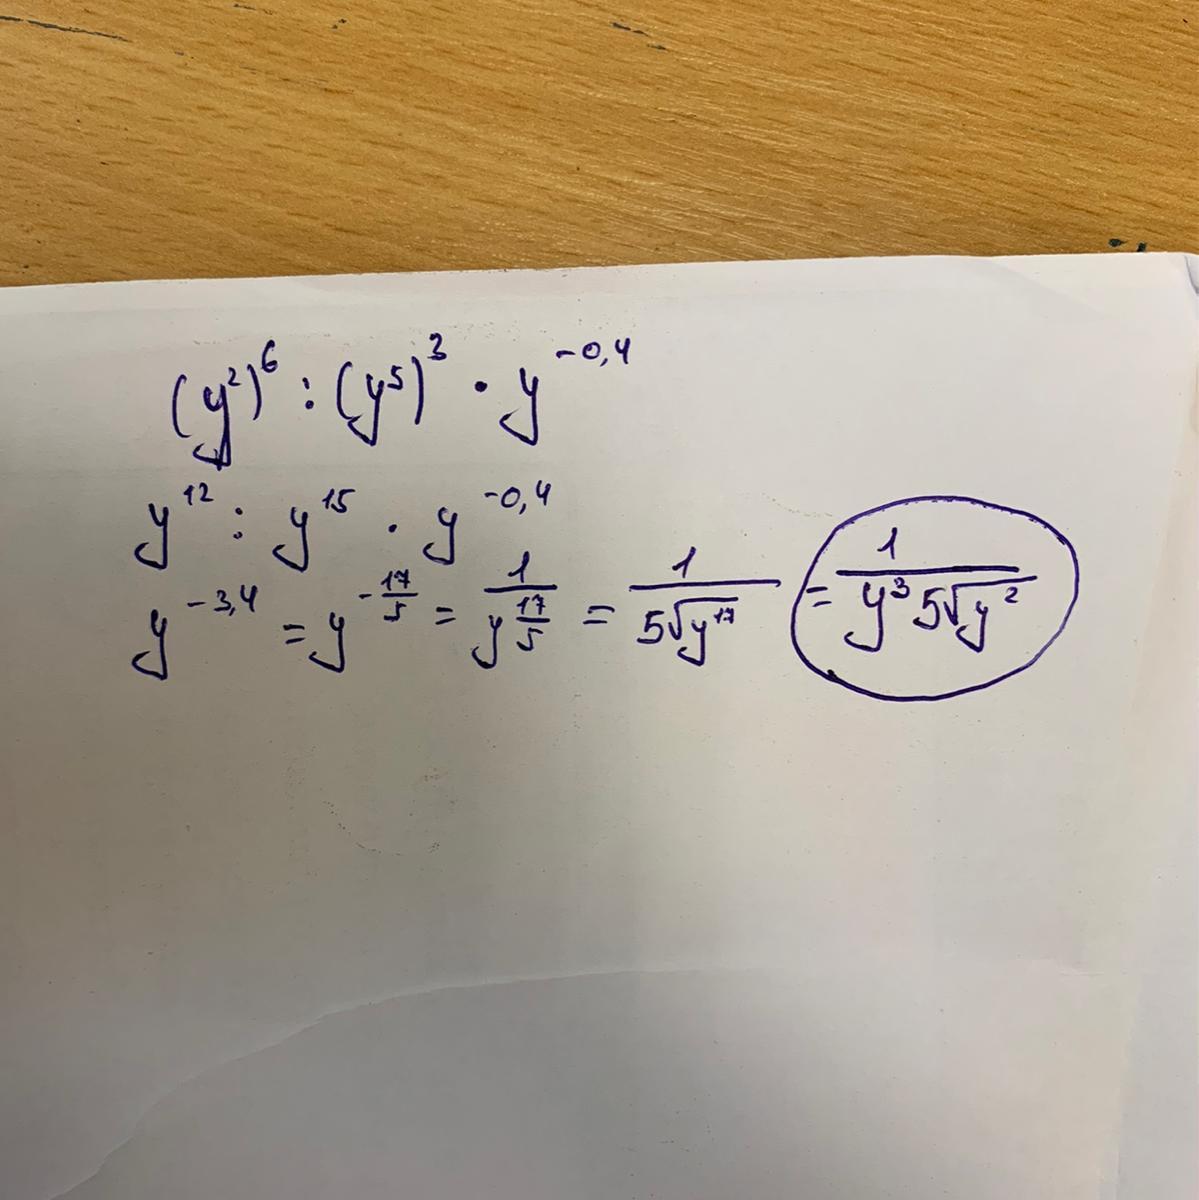 (y²)⁶ : (y⁵)³ · y^-0,4
y^12 : y^15 · y^-0,4
y^-3,4 = y^-17/5 = 1/y^17/5 = 1/5√y^17 = 1/y³ 5√y²